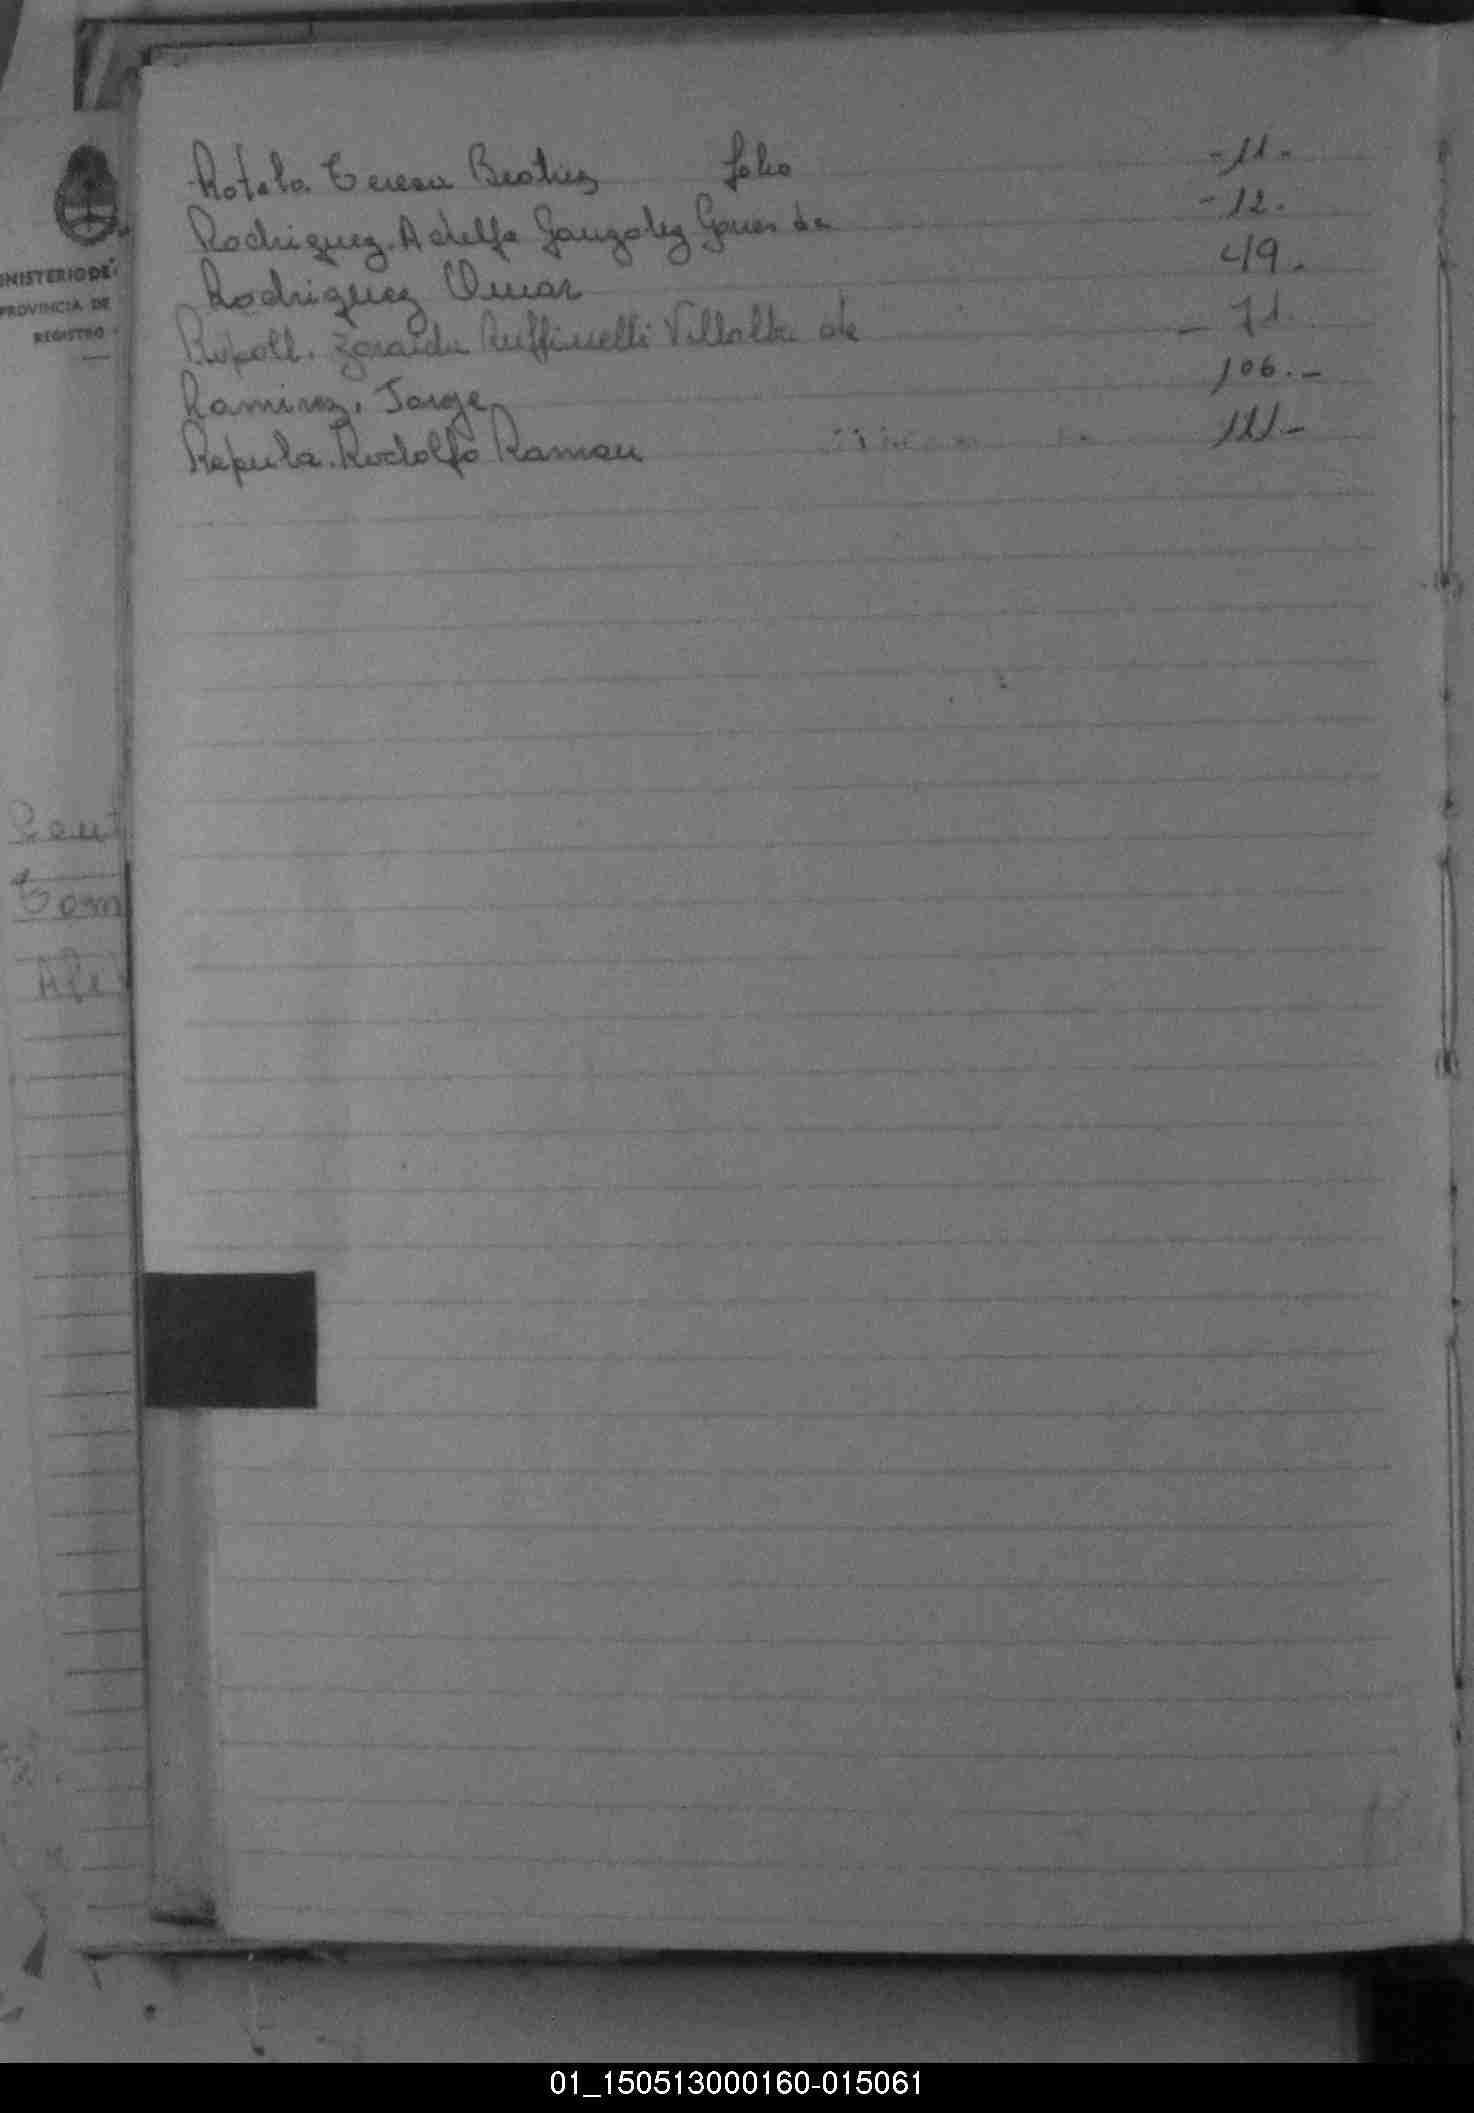 Rotela. Teresa Beatriz folio -11-
Rodriguez. Adelfa Gonzalez Gomes de -12.
Rodriguez Omar 49.
Ripoll. Zoraida Ruffinelli Villalba de - 71.
Ramirez, Jorge 106.-
Repula. Rodolfo Ramon 111-
NISTERIO DE
PROVINCIA DE
REGISTRO
01_150513000160-015061